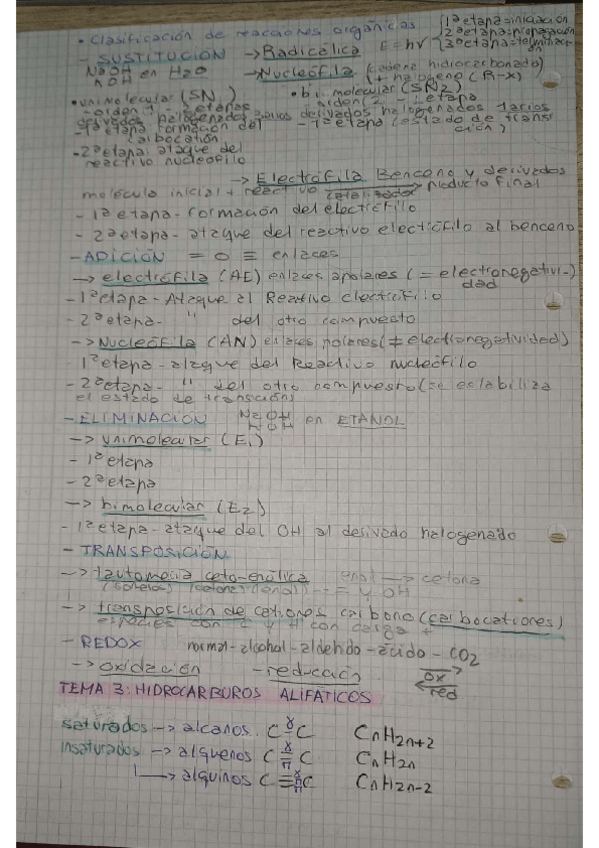 • Clasificación de reacciones orgánicas
1ª etapa = iniciación
- SUSTITUCIÓN → Radicálica E = hν 2ª etapa = propagación
3ª etapa = terminación
NaOH en H2O → Nucleófila (cadena hidrocarbonada)
KOH (+ halógeno (R-X)
• unimolecular (SN1) • bimolecular (SN2)
- orden 1 - 2 etapas orden 2 - 1 etapa
derivados halogenados derivados halogenados 1arios
- 1ª etapa formación del carbocatión - 1ª etapa (estado de transición)
- 2ª etapa: ataque del
reactivo nucleófilo
→ Electrófila Benceno y derivados
molécula inicial + reactivo catalizador producto final
- 1ª etapa - formación del electrófilo
- 2ª etapa - ataque del reactivo electrófilo al benceno
- ADICIÓN = o ≡ enlaces
→ electrófila (AE) enlaces apolares (= electronegatividad)
- 1ª etapa - Ataque al Reactivo electrófilo
- 2ª etapa - " del otro compuesto
→ Nucleófila (AN) enlaces polares (≠ electronegatividad)
1ª etapa - ataque del Reactivo nucleófilo
- 2ª etapa - " del otro compuesto (se estabiliza
el estado de transición)
- ELIMINACIÓN NaOH
KOH en ETANOL
→ unimolecular (E1)
- 1ª etapa
- 2ª etapa
→ bimolecular (E2)
- 1ª etapa - ataque del OH al derivado halogenado
- TRANSPOSICIÓN
→ tautomería ceto-enólica enol → cetona
(cetona) (enol) = y OH
→ transposición de cationes carbono (carbocationes)
especies con C y H con carga +
- REDOX normal - alcohol - aldehido - ácido - CO2
→ oxidación - reducción ox
red
TEMA 3: HIDROCARBUROS ALIFÁTICOS
saturados → alcanos C - C CnH2n+2
insaturados → alquenos C = C CnH2n
→ alquinos C ≡ C CnH2n-2